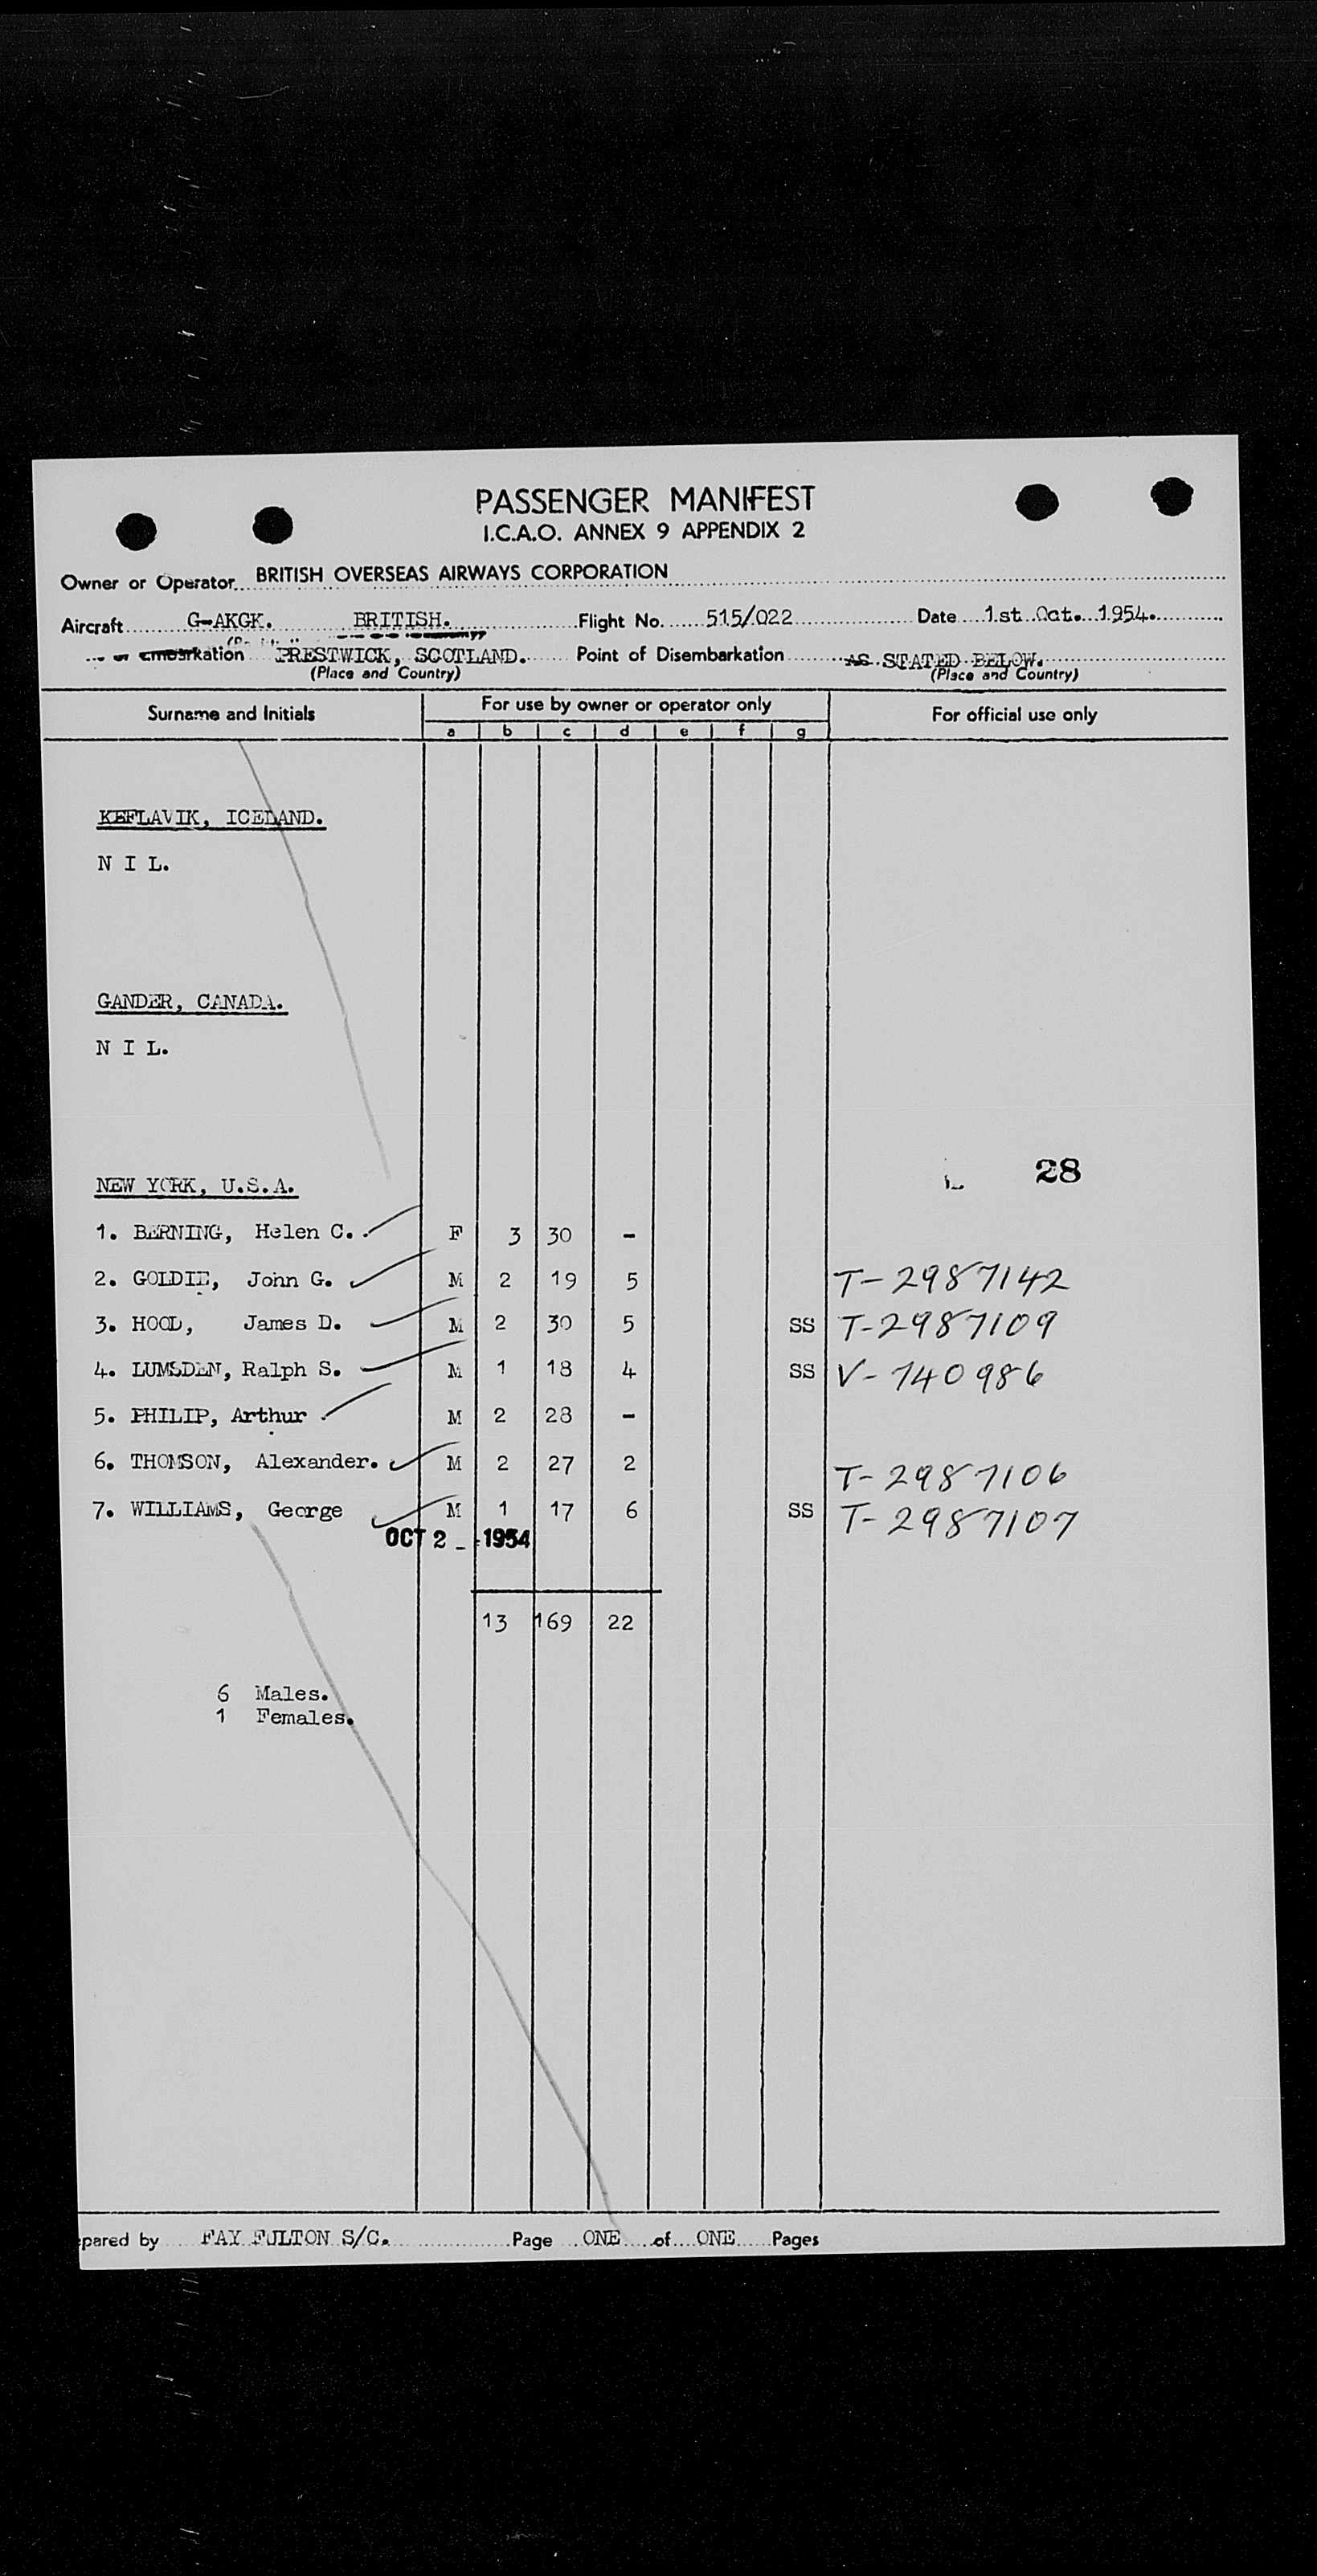 PASSENGER MANIFEST
I.C.A.O. ANNEX 9 APPENDIX 2
Owner or Operator BRITISH OVERSEAS AIRWAYS CORPORATION
Aircraft G-AKGK. BRITISH. Flight No. 515/022 Date 1st Oct. 1954.
embarkation PRESTWICK, SCOTLAND. Point of Disembarkation AS STATED BELOW.
(Place and Country) (Place and Country)
Surname and Initials For use by owner or operator only For official use only
a b c d e f g
KEFLAVIK, ICELAND.
N I L.
GANDER, CANADA.
N I L.
28
NEW YORK, U.S.A.
1. BERNING, Helen C. F 3 30 -
2. GOLDIE, John G. M 2 19 5 T-2987142
3. HOOD, James D. M 2 30 5 SS T-2987109
4. LUMSDEN, Ralph S. M 1 18 4 SS V-140986
5. PHILIP, Arthur M 2 28 -
6. THOMSON, Alexander. M 2 27 2 T-2987106
7. WILLIAMS, George M 1 17 6 SS T-2987107
OCT 2 - 1954
13 169 22
6 Males.
1 Females.
pared by FAY FULTON S/C. Page ONE of ONE Pages